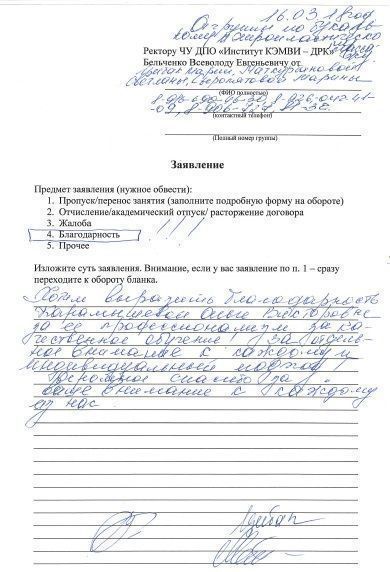 16.03.18 год
От группы по
Ректору ЧУ ДПО «Институт КЭМВИ – ДРК»
Бельченко Всеволоду Евгеньевичу от
Марии,
Светланы, Марины
(ФИО полностью)
(контактный телефон)
(Полный номер группы)
Заявление
Предмет заявления (нужное обвести):
1. Пропуск/перенос занятия (заполните подробную форму на обороте)
2. Отчисление/академический отпуск/ расторжение договора
3. Жалоба
4. Благодарность !!!
5. Прочее
Изложите суть заявления. Внимание, если у вас заявление по п. 1 – сразу
переходите к обороту бланка.
Хотим выразить благодарность
Ольге Викторовне
за её профессионализм, за ка-
чественное обучение! За отдель-
ное внимание к каждому и
индивидуальный подход!
Огромное спасибо за
ваше внимание к каждому
из нас.